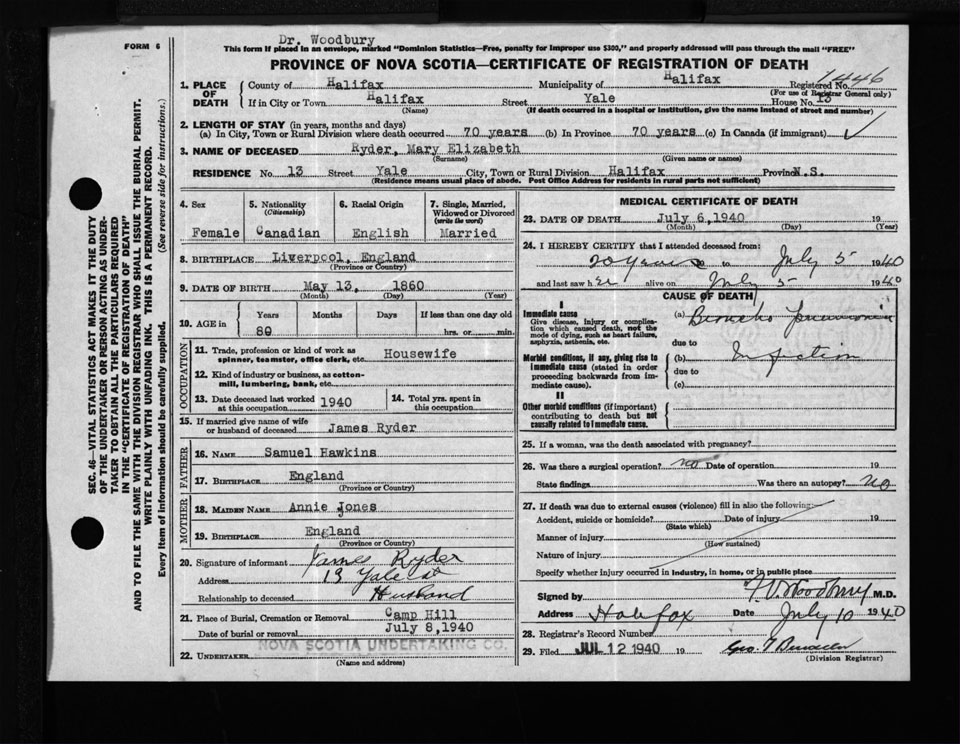 Dr. Woodbury
FORM 6
This form if placed in an envelope, marked "Dominion Statistics—Free, penalty for improper use $300," and properly addressed will pass through the mail "FREE"
PROVINCE OF NOVA SCOTIA—CERTIFICATE OF REGISTRATION OF DEATH
1. PLACE OF DEATH
County of Halifax Municipality of Halifax Registered No. 1446
(For use of Registrar General only)
If in City or Town Halifax Street Yale House No. 13
(Name) (If death occurred in a hospital or institution, give the name instead of street and number)
2. LENGTH OF STAY (in years, months and days)
(a) In City, Town or Rural Division where death occurred 70 years (b) In Province 70 years (c) In Canada (if immigrant) ✓
3. NAME OF DECEASED Ryder, Mary Elizabeth
(Surname) (Given name or names)
RESIDENCE No. 13 Street Yale City, Town or Rural Division Halifax Province N.S.
(Residence means usual place of abode. Post Office Address for residents in rural parts not sufficient)
4. Sex
Female
5. Nationality
(Citizenship)
Canadian
6. Racial Origin
English
7. Single, Married, Widowed or Divorced
(write the word)
Married
8. BIRTHPLACE Liverpool, England
(Province or Country)
9. DATE OF BIRTH May 13, 1860
(Month) (Day) (Year)
10. AGE in
Years Months Days If less than one day old
80 hrs. or min.
OCCUPATION
11. Trade, profession or kind of work as spinner, teamster, office clerk, etc. Housewife
12. Kind of industry or business, as cotton-mill, lumbering, bank, etc.
13. Date deceased last worked at this occupation 1940
14. Total yrs. spent in this occupation
15. If married give name of wife or husband of deceased James Ryder
FATHER
16. NAME Samuel Hawkins
17. BIRTHPLACE England
(Province or Country)
MOTHER
18. MAIDEN NAME Annie Jones
19. BIRTHPLACE England
(Province or Country)
20. Signature of informant James Ryder
Address 13 Yale St
Relationship to deceased Husband
21. Place of Burial, Cremation or Removal Camp Hill
Date of burial or removal July 8, 1940
22. UNDERTAKER NOVA SCOTIA UNDERTAKING CO.
(Name and address)
MEDICAL CERTIFICATE OF DEATH
23. DATE OF DEATH July 6, 1940 19
(Month) (Day) (Year)
24. I HEREBY CERTIFY that I attended deceased from:
20 years to July 5 1940
and last saw her alive on July 5 1940
CAUSE OF DEATH
I
Immediate cause
Give disease, injury or complication which caused death, not the mode of dying, such as heart failure, asphyxia, asthenia, etc.
(a) Broncho pneumonia
due to
Morbid conditions, if any, giving rise to immediate cause (stated in order proceeding backwards from immediate cause).
(b) Infection
due to
(c)
II
Other morbid conditions (if important) contributing to death but not causally related to immediate cause.
25. If a woman, was the death associated with pregnancy?
26. Was there a surgical operation? no Date of operation 19
State findings Was there an autopsy? no
27. If death was due to external causes (violence) fill in also the following:
Accident, suicide or homicide? Date of injury 19
(State which)
Manner of injury
(How sustained)
Nature of injury
Specify whether injury occurred in industry, in home, or in public place
Signed by F V Woodbury M.D.
Address Halifax Date July 10 1940
28. Registrar's Record Number
29. Filed JUL 12 1940 19 Geo.
(Division Registrar)
SEC. 46—VITAL STATISTICS ACT MAKES IT THE DUTY
OF THE UNDERTAKER OR PERSON ACTING AS UNDER-
TAKER TO OBTAIN ALL THE PARTICULARS REQUIRED
IN THE "CERTIFICATE OF REGISTRATION OF DEATH"
AND TO FILE THE SAME WITH THE DIVISION REGISTRAR WHO SHALL ISSUE THE BURIAL PERMIT.
WRITE PLAINLY WITH UNFADING INK. THIS IS A PERMANENT RECORD.
Every item of information should be carefully supplied. (See reverse side for instructions.)